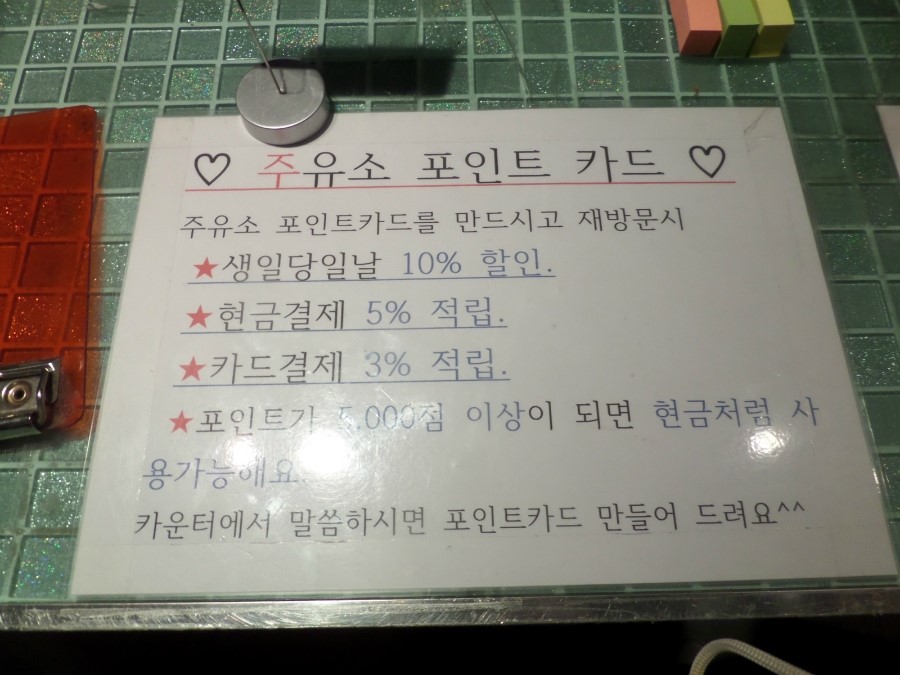 ♡ 주유소 포인트 카드 ♡
주유소 포인트카드를 만드시고 재방문시
★생일당일날 10% 할인.
★현금결제 5% 적립.
★카드결제 3% 적립.
★포인트가 5.000점 이상이 되면 현금처럼 사
용가능해요.
카운터에서 말씀하시면 포인트카드 만들어 드려요^^